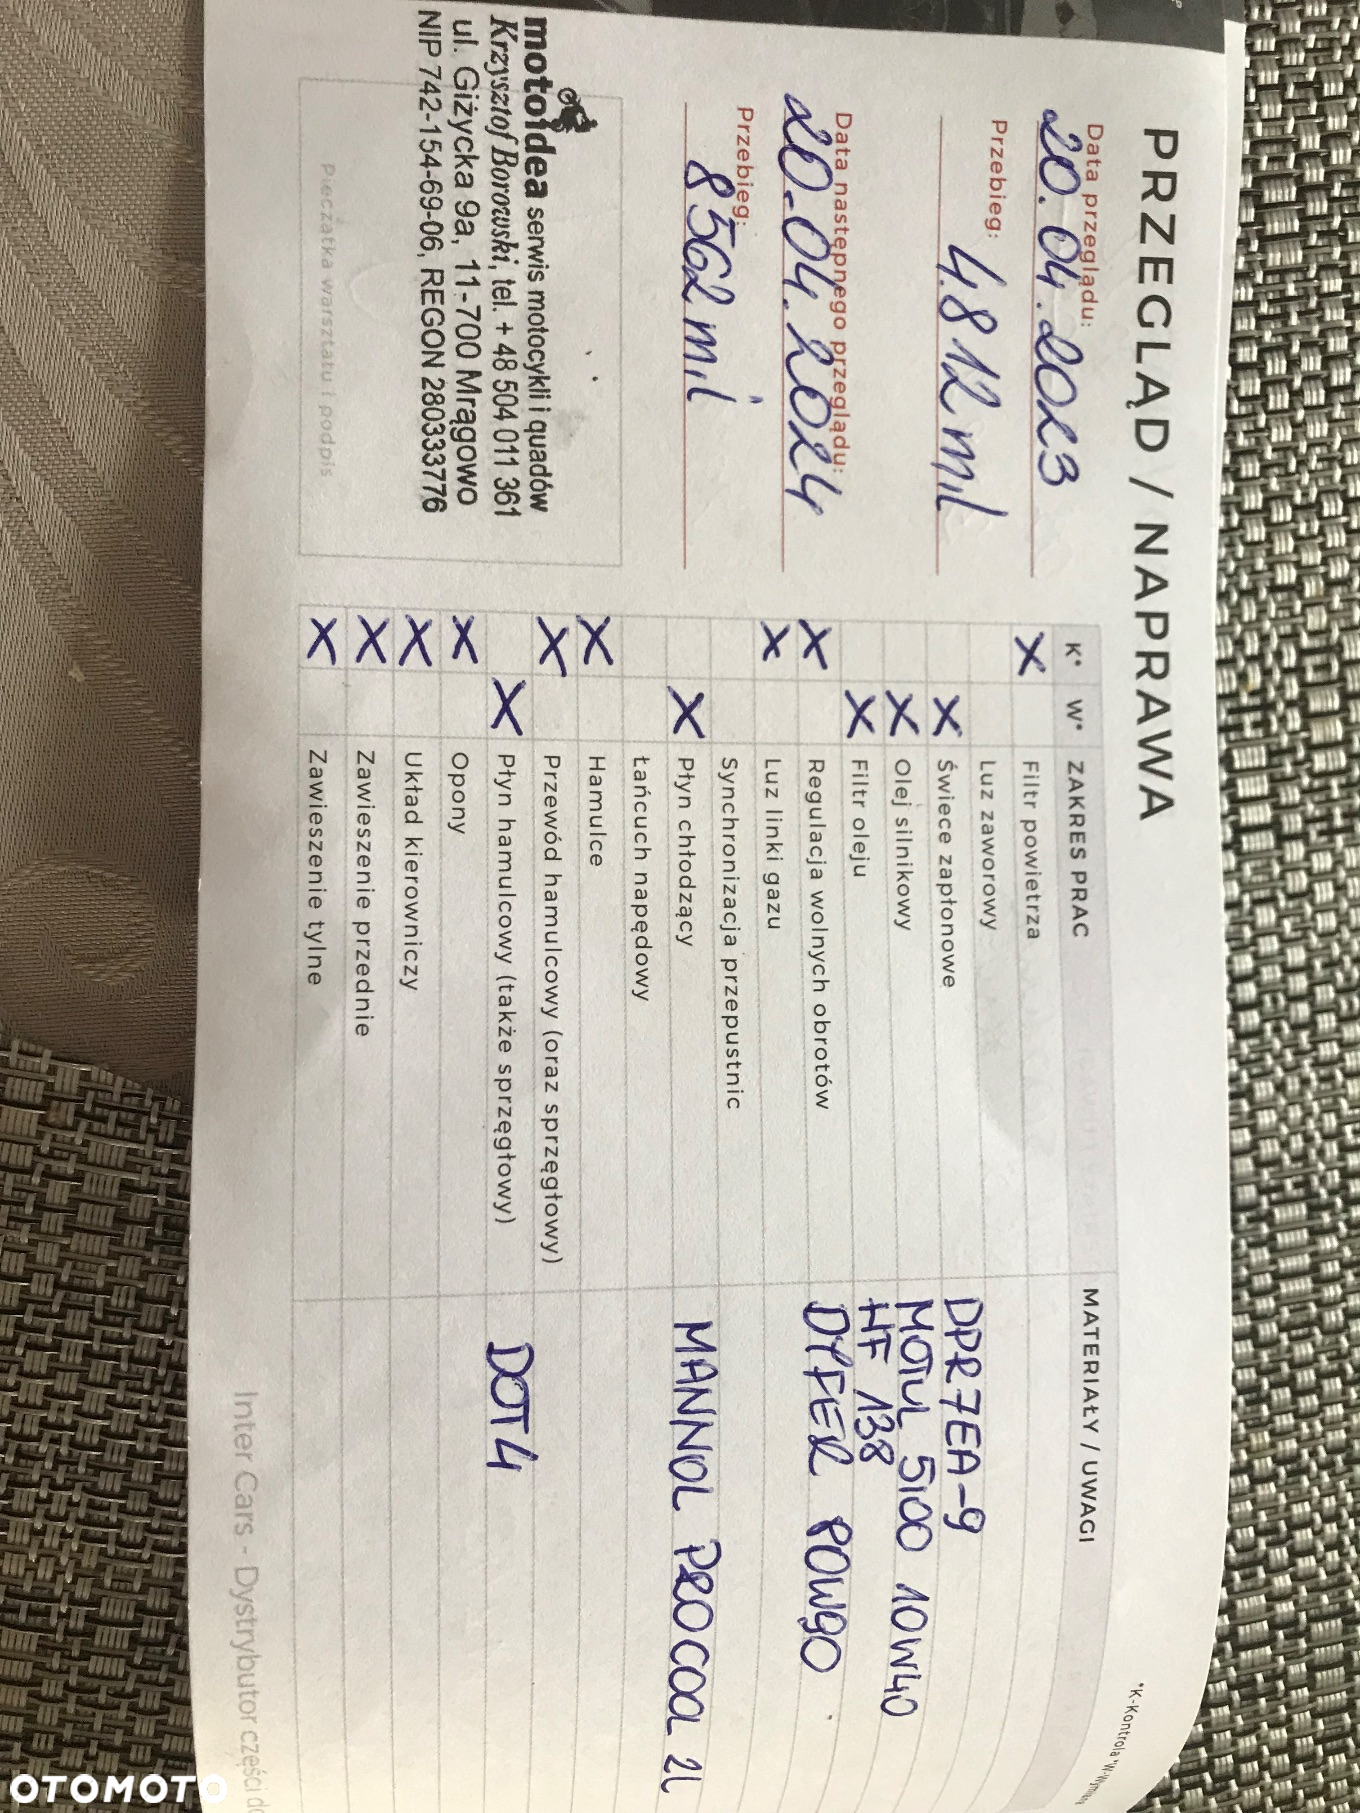 PRZEGLĄD / NAPRAWA
Data przeglądu:
20.04.2023
Przebieg:
4812 mil
Data następnego przeglądu:
20.04.2024
Przebieg:
8562 mil
motoidea serwis motocykli i quadów
Krzysztof Borowski, tel. + 48 504 011 361
ul. Giżycka 9a, 11-700 Mrągowo
NIP 742-154-69-06, REGON 280333776
Pieczątka warsztatu i podpis
*K-Kontrola *W-Wymiana
K* W* ZAKRES PRAC MATERIAŁY / UWAGI
X Filtr powietrza
Luz zaworowy
X Świece zapłonowe DPR7EA-9
X Olej silnikowy MOTUL 5100 10W40
X Filtr oleju HF 138
X Regulacja wolnych obrotów
X Luz linki gazu
Synchronizacja przepustnic
X Płyn chłodzący MANNOL PROCOOL 2L
Łańcuch napędowy
X Hamulce
X Przewód hamulcowy (oraz sprzęgłowy)
X Płyn hamulcowy (także sprzęgłowy) DOT4
X Opony
X Układ kierowniczy
X Zawieszenie przednie
X Zawieszenie tylne
Inter Cars - Dystrybutor części do
OTOMOTO